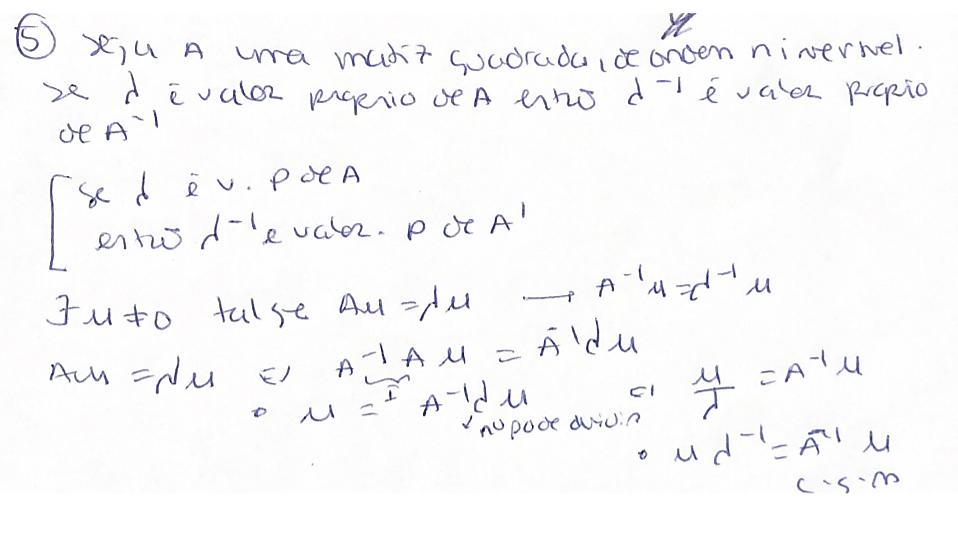 5 Seja A uma matriz quadrada, de ordem n invertível.
se λ é valor próprio de A então λ⁻¹ é valor próprio
de A⁻¹
se λ é v. p de A
então λ⁻¹ é valor. p de A¹
∃u≠0 tal que Au = λu → A⁻¹u = λ⁻¹u
Au = λu ⇔ A⁻¹Au = A⁻¹λu
I
u = A⁻¹λu ⇔ u/λ = A⁻¹u
pode dividir
uλ⁻¹ = A⁻¹u
c.q.m